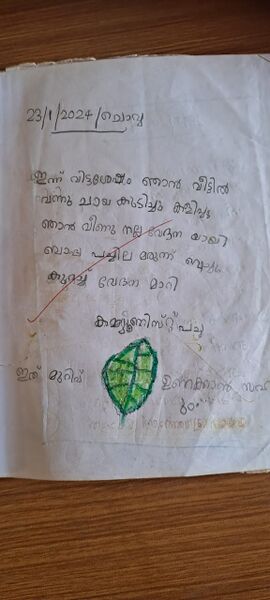 23/1/2024/ചൊവ്വ
ഇന്ന് വിട്ടശേഷം ഞാൻ വീട്ടിൽ
വന്നു ചായ കുടിച്ചു കളിച്ചു
ഞാൻ വീണു നല്ല വേദന യായി
ബാപ്പ പച്ചില മരുന്ന്
കുറച്ച് വേദന മാറി
കമ്മ്യൂണിസ്റ്റ് പച്ച
ഇത് മുറിവ് ഉണക്കാൻ സഹാ